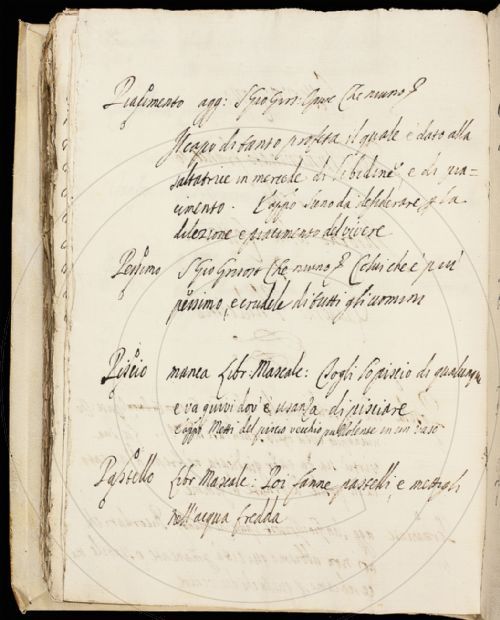 Piacimento agg: S Gio Gris: Opusc Che niuno &
Il capo di santo profeta il quale è dato alla
saltatrice in mercede di libidine e di pia=
cimento. E appo sono da desiderare p la
dilezione e piacimento del vivere
Pessimo S Gio Grisost Che niuno & Colui che è piu'
pessimo, e crudele di tutti gli uomini
Piscio manca Libr. Mascale: Togli lo piscio di qualunqu
e va quivi dov'è usanza di pisciare
e appo Metti del piscio vecchio puzzolente in un vaso
Pastello Libr Mascale: Poi fanne pastelli, e mettigli
nell'acqua fredda